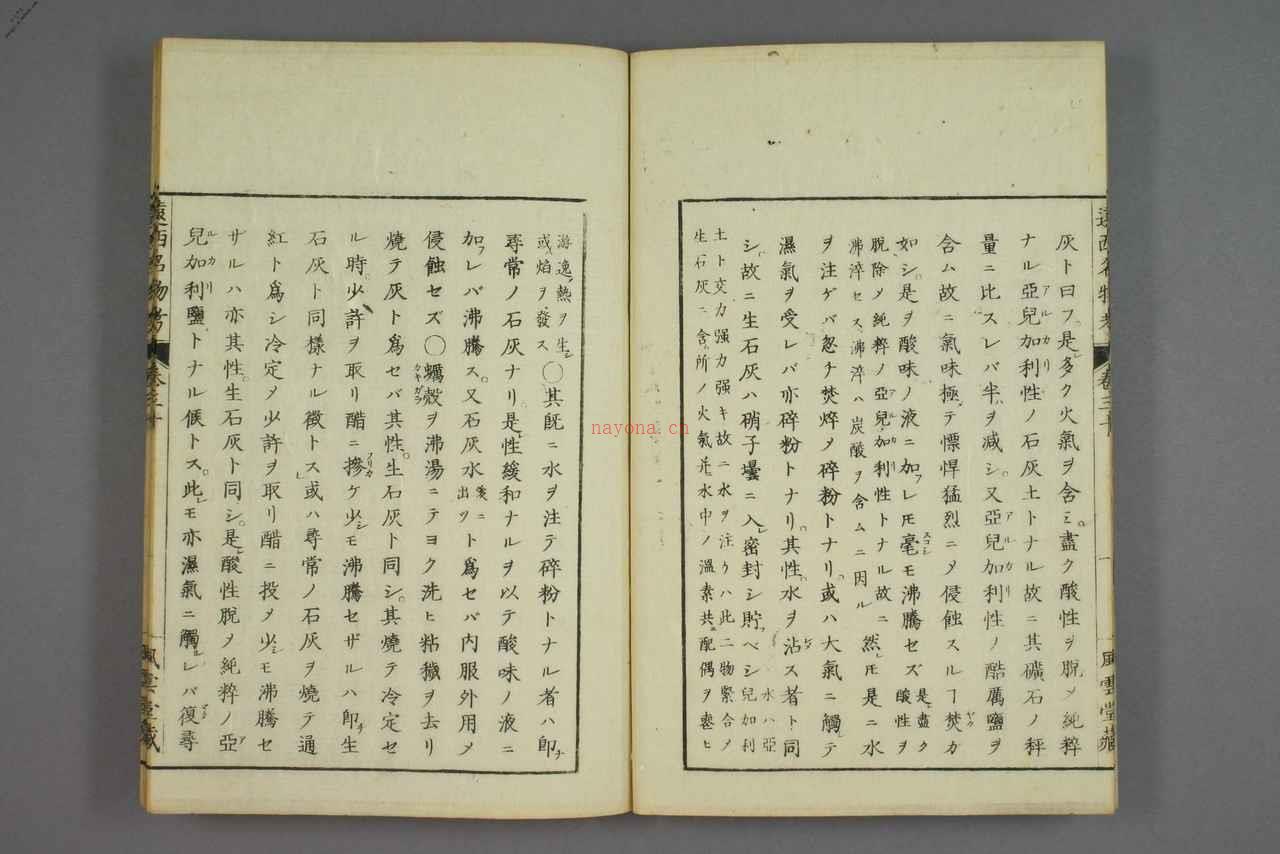 灰ト曰フ是レ多ク火氣ヲ含ミ盡ク酸性ヲ脱メ純粹
ナル亞兒加利性ノ石灰土トナル故ニ其礦石ノ秤
量ニ比スレバ半ヲ減シ又亞兒加利性ノ酷厲鹽ヲ
含ム故ニ氣味極テ慓悍猛烈ニメ侵蝕スルヿ焚カ
如シ是ヲ酸味ノ液ニ加フレ𪜈毫モ沸騰セズ是盡ク酸性ヲ
脱除メ純粹ノ亞兒加利性トナル故ニ沸淬セス沸淬ハ炭酸ヲ含ムニ因ル然レ𪜈是ニ水
ヲ注ゲバ忽チ焚焠メ碎粉トナリ或ハ大氣ニ觸レテ
濕氣ヲ受レバ亦碎粉トナリ其性水ヲ沾ス者ト同
シ故ニ生石灰ハ硝子壜ニ入レ密封シ貯フベシ水ハ亞兒加利
土ト交力强力强キ故ニ水ヲ注ウハ此二物緊合メ
生石灰ニ含所ノ火氣并水中ノ溫素共ニ配偶ヲ
游逸熱ヲ生シ或焰ヲ發ス〇其既ニ水ヲ注テ碎粉トナル者ハ即チ
尋常ノ石灰ナリ是レ性緩和ナルヲ以テ酸味ノ液ニ
加フレバ沸騰ス又石灰水後ニ出ヅト爲セバ内服外用メ
侵蝕セズ〇蠣殼ヲ沸湯ニテヨク洗ヒ粘穢ヲ去リ
燒テ灰ト爲セバ其性生石灰ト同シ其燒テ冷定セ
ル時少許ヲ取リ醋ニ摻ケ少シモ沸騰セザルハ即チ生
石灰ト同樣ナル徵トス或ハ尋常ノ石灰ヲ燒テ通
紅ト爲シ冷定メ少許ヲ取リ醋ニ投メ少シモ沸騰セ
ザルハ亦其性生石灰ト同シ是レ酸性脱メ純粹ノ亞
兒加利鹽トナル候トス此レモ亦濕氣ニ觸レバ復タ尋
遠西名物考
卷三十
風雲堂藏
nayona.cn